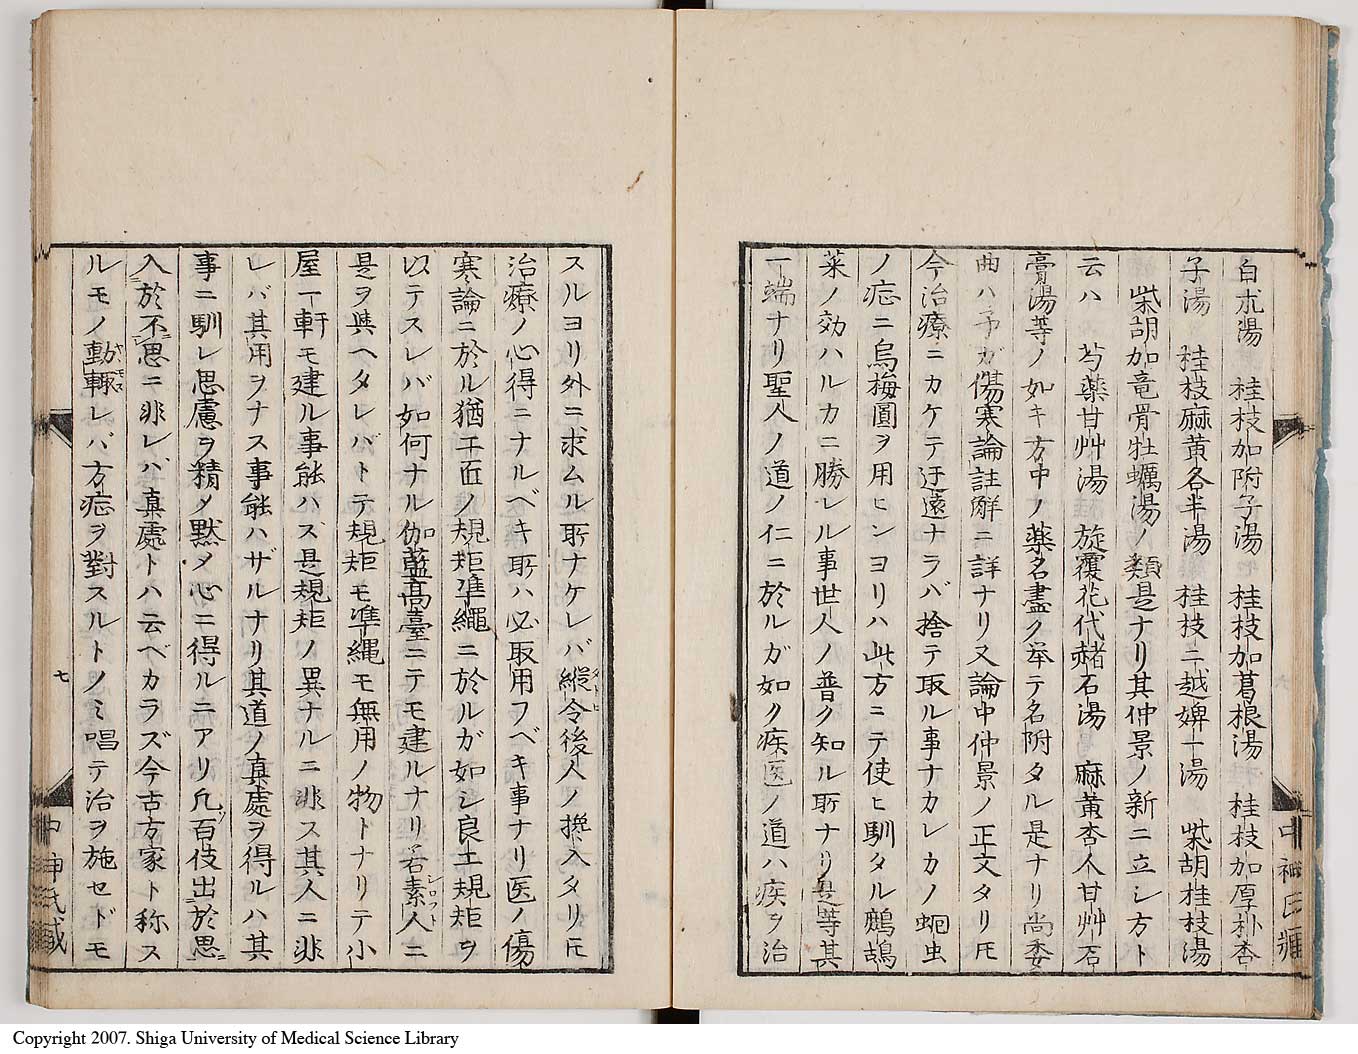 白朮湯　桂枝加附子湯　桂枝加葛根湯　桂枝加厚朴杏
子湯　桂枝麻黄各半湯　桂枝二越婢一湯　柴胡桂枝湯
柴胡加竜骨牡蠣湯ノ類是ナリ其仲景ノ新ニ立シ方ト
云ハ　芍薬甘艸湯　旋覆花代赭石湯　麻黄杏人甘艸石
膏湯等ノ如キ方中ノ薬名盡ク举テ名附タル是ナリ尚委
曲ハ予ガ傷寒論註解ニ詳ナリ又論中仲景ノ正文タリ𪜈
今治療ニカケテ迂遠ナラバ捨テ取ル事ナカレカノ蛔虫
ノ症ニ烏梅圓ヲ用ヒンヨリハ此方ニテ使ヒ馴タル鷓鴣
菜ノ効ハルカニ勝レル事世人ノ普ク知ル所ナリ是等其
一端ナリ聖人ノ道ノ仁ニ於ルガ如ク疾医ノ道ハ疾ヲ治
スルヨリ外ニ求ムル所ナケレバ縦令後人ノ攙入タリ𪜈
治療ノ心得ニナルベキ所ハ必取用フベキ事ナリ医ノ傷
寒論ニ於ル猶工匠ノ規矩準縄ニ於ルガ如シ良工規矩ヲ
以テスレバ如何ナル伽藍高臺ニテモ建ルナリ若素人ニ
是ヲ與ヘタレバトテ規矩モ準縄モ無用ノ物トナリテ小
屋一軒モ建ル事能ハズ是規矩ノ異ナルニ非ス其人ニ非
レバ其用ヲナス事能ハザルナリ其道ノ真處ヲ得ルハ其
事ニ馴レ思慮ヲ精メ黙メ心ニ得ルニアリ凡百伎出於思
入於不思ニ非レバ真處トハ云ベカラズ今古方家ト称ス
ルモノ動輙レバ方症ヲ對スルトノミ唱テ治ヲ施セドモ
七
中神氏蔵
Copyright 2007. Shiga University of Medical Science Library